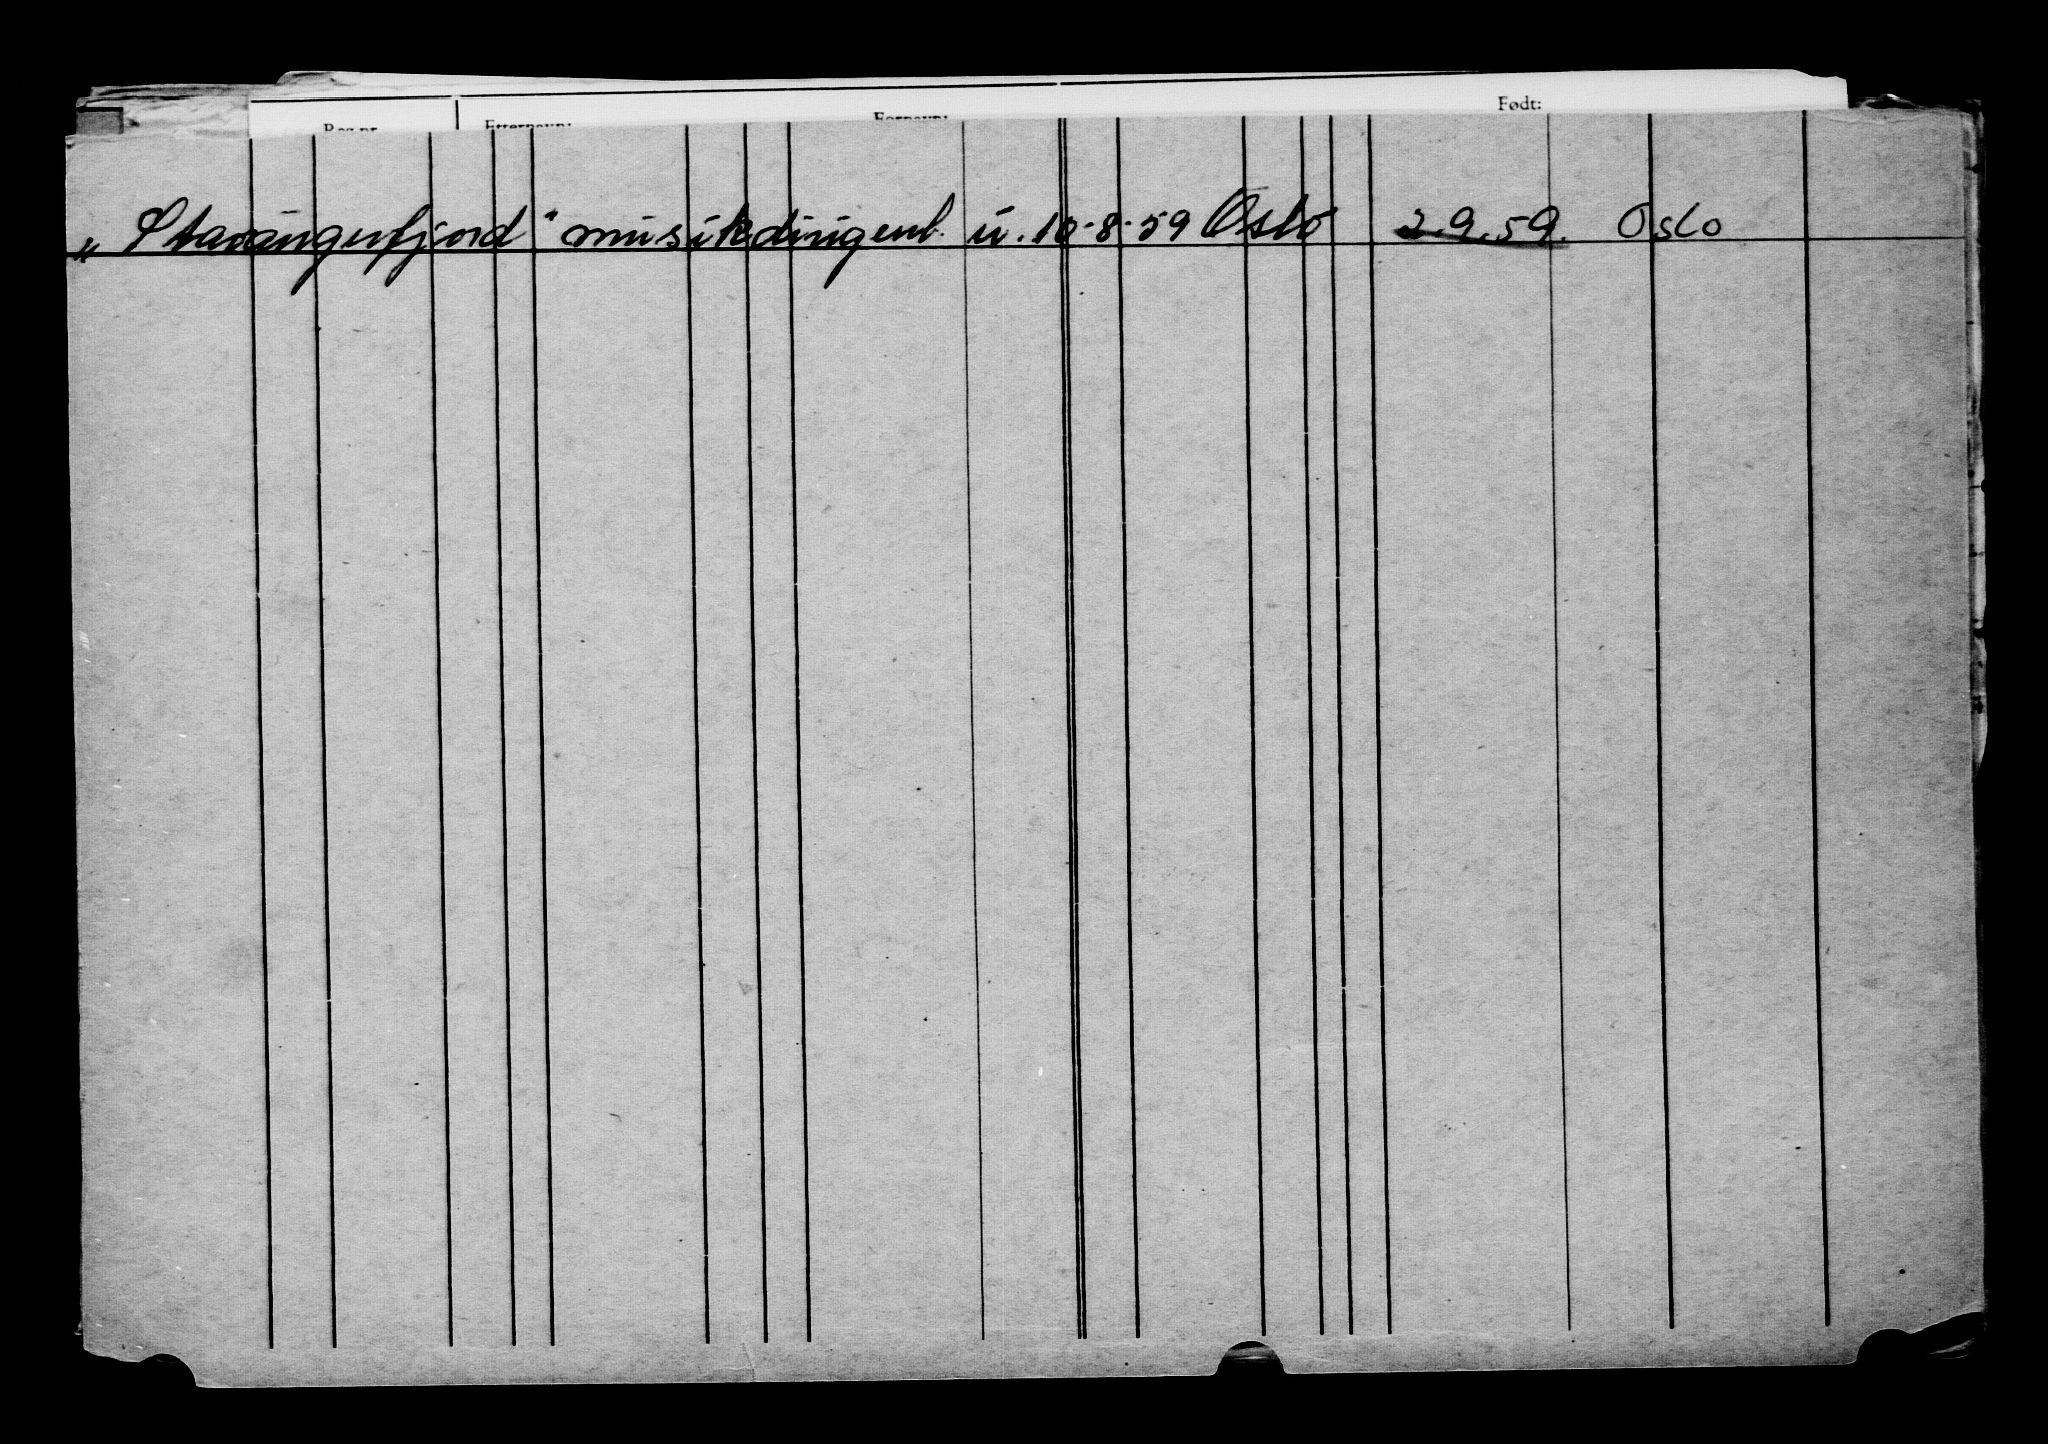 Født:
Reg.nr. Etternavn: Fornavn:
„Stavangerfjord" musikdirigent. u. 10-8-59 Oslo 2.9.59. Oslo